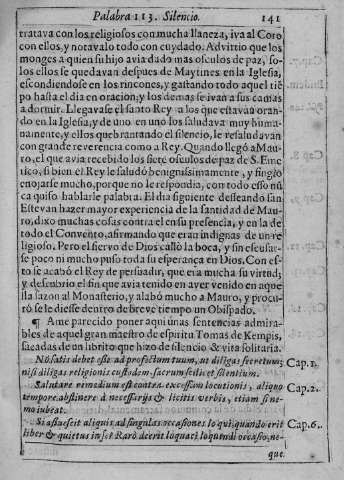 Palabra 113. Silencio. 141
tratava con los religiosos con mucha llaneza, iva al Coro
con ellos, y notavalo todo con cuydado. Advirtio que los
monges a quien su hijo avia dado mas osculos de paz, so-
los ellos se quedavan despues de Maytines en la Iglesia,
escondiendose en los rincones, y gastando todo aquel tiē
po hasta el dia en oracion, y los demas se ivan a sus camas
a dormir. Llegavase el santo Rey a los que estavan oran-
do en la Iglesia, y de uno en uno los saludava muy huma-
namente, y ellos quebrantando el silencio, le resaludavan
con grande reverencia como a Rey. Quando llegò a Mau-
ro, el que avia recebido los siete osculos de paz de S. Eme-
rico, si bien el Rey le saludò benignissimamente, y fingio
enojarse mucho, porque no le respondia, con todo esso nū
ca quiso hablarle palabra. El dia siguiente desseando san
Estevan hazer mayor experiencia de la santidad de Mau-
ro, dixo muchas cosas contra el en su presencia, y en la de
todo el Convento, afirmando que eran indignas de un re-
ligioso. Pero el siervo de Dios callò la boca, y sin escusar-
se poco ni mucho puso toda su esperança en Dios. Con es-
to se acabò el Rey de persuadir, que era mucha su virtud,
y descubrio el fin que avia tenido en aver venido en aque
lla sazon al Monasterio, y alabò mucho a Mauro, y procu-
rò se le diesse dentro de breve tiempo un Obispado.
¶ A me parecido poner aqui unas sentencias admira-
bles de aquel gran maestro de espiritu Tomas de Kempis,
sacadas de un librito que hizo de silencio & vita solitaria.
Nō satis debet este ad profectum tuum, ut diligas secretum;
nisi diligas religionis custodem sacrum scilicet silentium. Cap. 1.
Salutare remedium est contra excessum locutionis, aliquo
tempore abstinere à necessarijs & licitis verbis, etiam si ne-
mo iubeat. Cap. 2.
Si assuescit aliquis ad singulas occasiones loqui, quando erit
liber & quietus in se? Rarò deerit loquaci, loquendi occasio, ne-
que. Cap. 6.